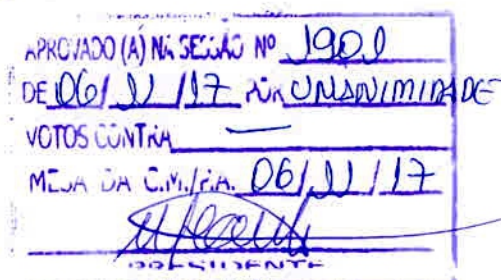 APROVADO (A) NA SESSÃO Nº 1901
DE 06/11/17 POR UNANIMIDADE
VOTOS CONTRA —
MESA DA C.M./P.A. 06/11/17
PRESIDENTE